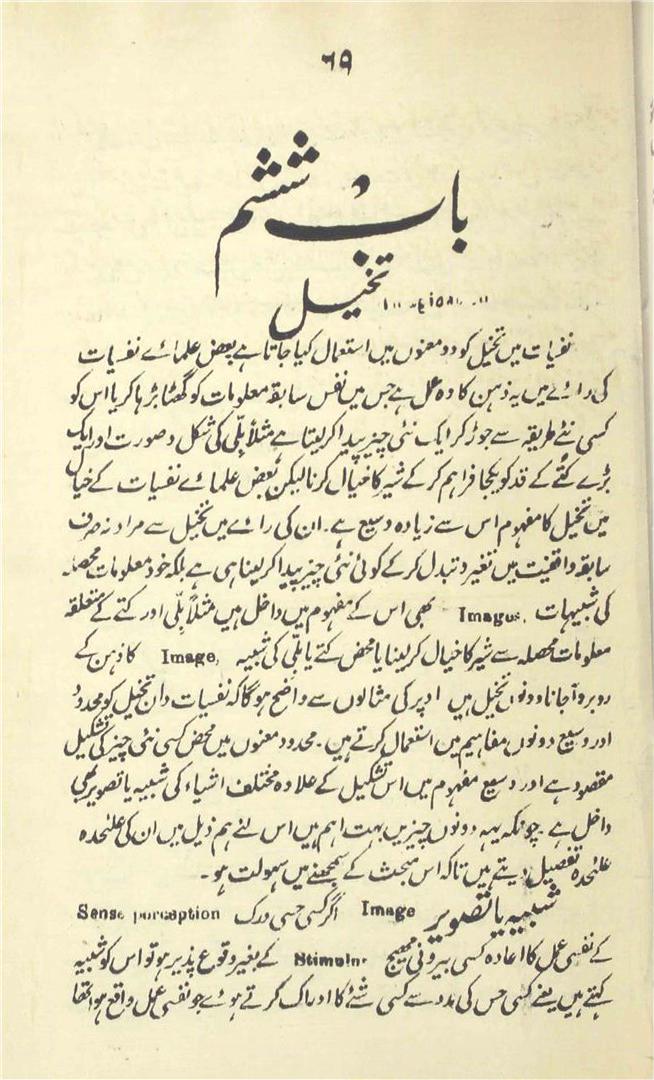 ۶۹
باب ششم
تخیل
نفسیات میں تخیل کو دو معنوں میں استعمال کیا جاتا ہے بعض علمائے نفسیات
کی رائے میں یہ ذہن کا وہ عمل ہے جس میں نفس سابقہ معلومات کو گھٹا بڑھا کر یا اس کو
کسی نئے طریقہ سے جوڑ کر ایک نئی چیز پیدا کر لیتا ہے مثلاً بلّی کی شکل و صورت اور ایک
بڑے کتّے کے قد کو یکجا فراہم کر کے شیر کا خیال کرنا لیکن بعض علمائے نفسیات کے خیال
میں تخیل کا مفہوم اس سے زیادہ وسیع ہے۔ ان کی رائے میں تخیل سے مراد نہ صرف
سابقہ واقفیت میں تغیر و تبدل کر کے کوئی نئی چیز پیدا کر لینا ہی ہے بلکہ خود معلومات محصلہ
کی شبیہات Images. بھی اس کے مفہوم میں داخل ہیں مثلاً بلّی اور کتے کے متعلقہ
معلومات محصلہ سے شیر کا خیال کر لینا یا محض کتے یا بلّی کی شبیہ Image, کا ذہن کے
روبرو آ جانا دونوں تخیل ہیں اوپر کی مثالوں سے واضح ہوگا کہ نفسیات دان تخیل کو محدود
اور وسیع دونوں مفاہیم میں استعمال کرتے ہیں۔ محدود معنوں میں محض کسی نئی چیز کی تشکیل
مقصود ہے اور وسیع مفہوم میں اس تشکیل کے علاوہ مختلف اشیاء کی شبیہ یا تصویر بھی
داخل ہے۔ چونکہ یہہ دونوں چیزیں بہت اہم ہیں اس لئے ہم ذیل میں ان کی علٰحدہ
علٰحدہ تفصیل دیتے ہیں تاکہ اس مبحث کے سمجھنے میں سہولت ہو۔
شبیہ یا تصویر Image اگر کسی حسی درک Sense perception
کے نفسی عمل کا اعادہ کسی بیرونی مہیج Stimulu. کے بغیر وقوع پذیر ہو تو اس کو شبیہ
کہتے ہیں یعنے کسی حس کی مدد سے کسی شئے کا ادراک کرتے ہوئے جو نفسی عمل واقع ہوا تھا